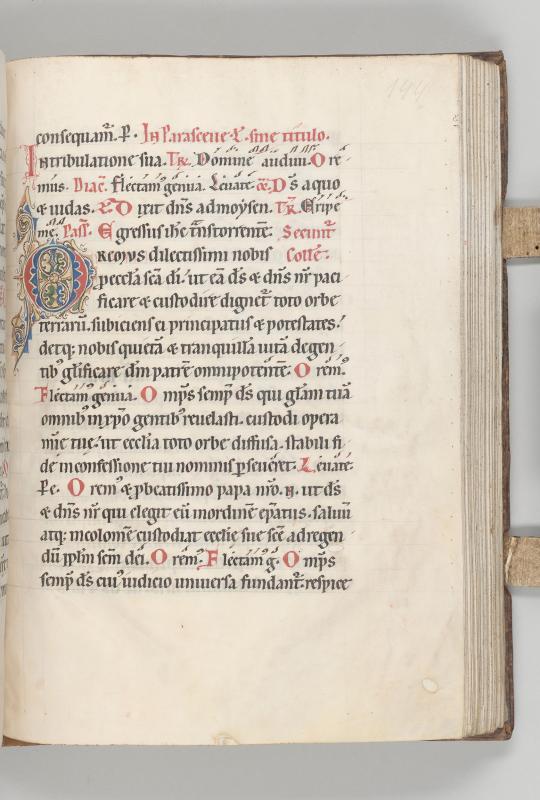 consequam̄. P. In Parasceue. L. sine titulo.
In tribulatione sua. Tr̄. Domine audiui. Ore
mus. Diac̄. Flectam᷒ genua. Leuate. Or̄. D̄s a quo
& iudas. L. Dixit dn̄s ad moysen. Tr̄. Eripe
me. Pass̄. Egressus ih̄c trans torrentem̄. Secunt᷒
Oremus dilectissimi nobis Collē.
p ecclā sc̄ā dī. ut eā d̄s & dn̄s nr̄ paci
ficare & custodire dignet᷒ toto orbe
terrarū. subiciens ei principatus & potestates.
detq; nobis quietā & tranquillā uitā degen
tib᷒ glificare dm̄ patrē omnipotentē. Orem᷒.
Flectam᷒ genua. Omp̄s semp̄ d̄s qui glam̄ tuā
omnib᷒ in xp̄o gentib᷒ reuelasti. custodi opera
mīe tue. ut ecclīa toto orbe diffusa. stabili fi
de in confessione tui nominis p̄seueret. Leuate.
P e. Orem᷒ & p beatissimo papa nr̄o. N. ut d̄s
& dn̄s nr̄ qui elegit eū in ordinē ep̄atus. saluū
atq; incolomē custodiat ecclīe sue sc̄ē ad regen
dū pplm̄ sc̄m̄ dei. Orem᷒. Flectam᷒ g. Omp̄s
semp̄ d̄s cui᷒ iudicio uniuersa fundant᷒. respice